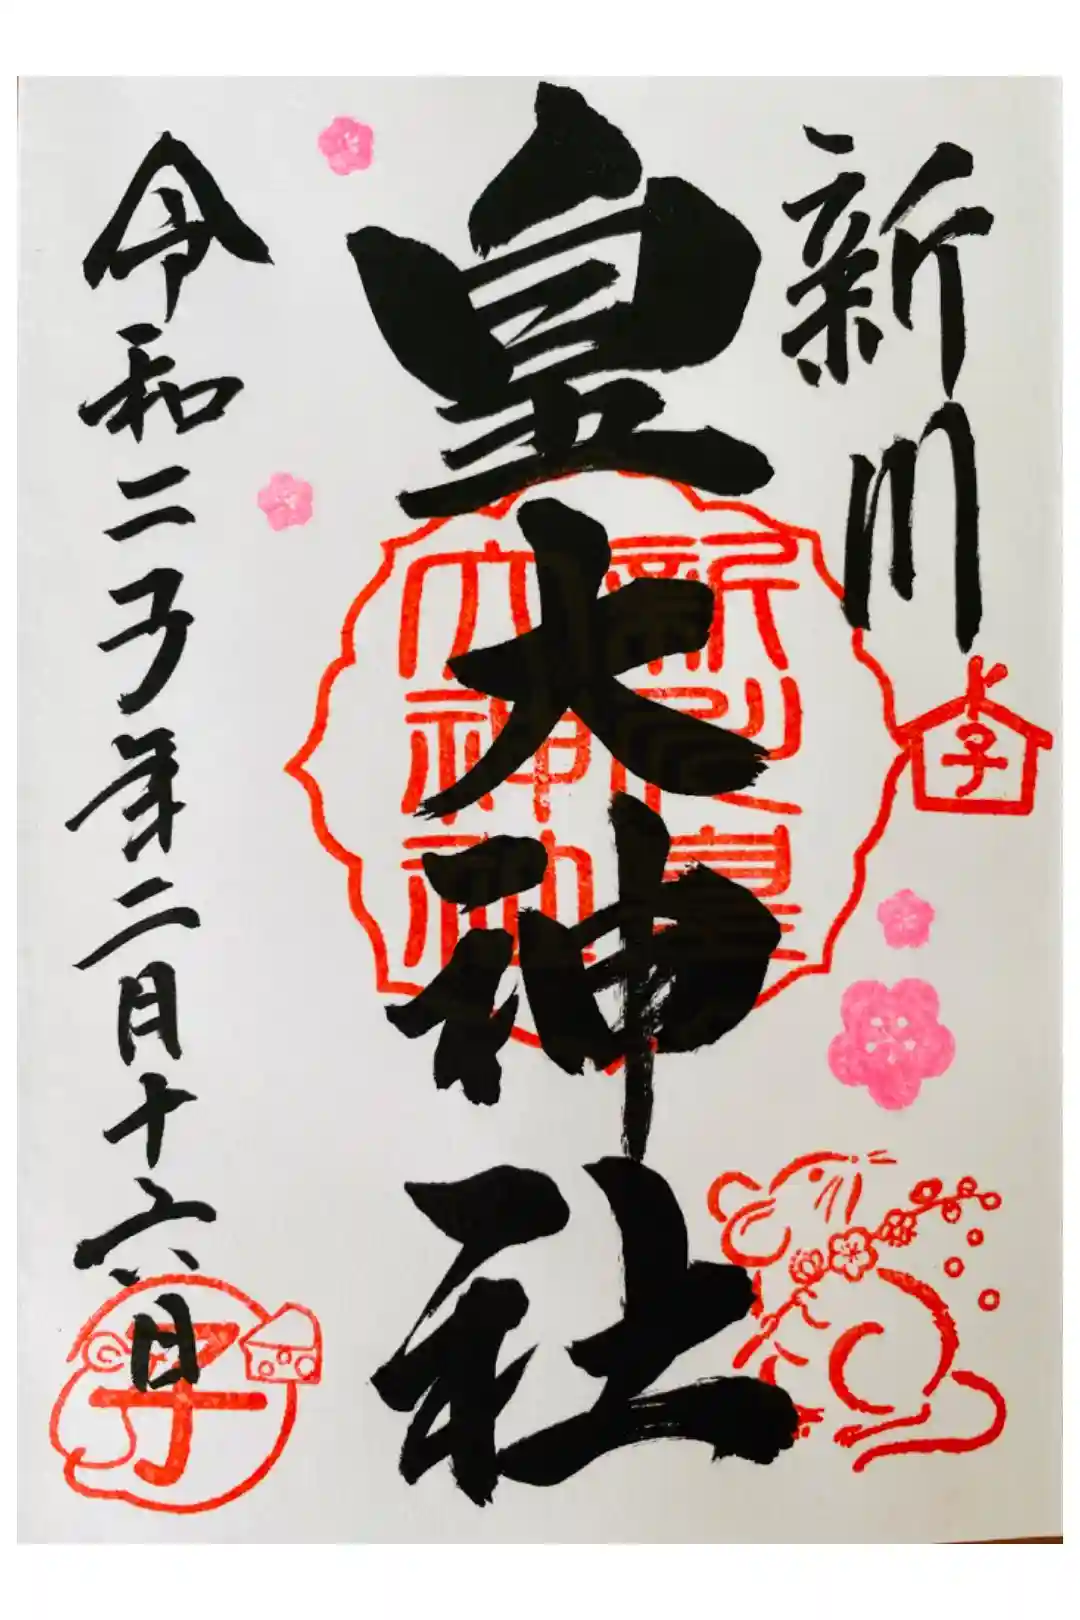 新川
皇大神社
令和二子年二月十六日
新川皇
大神社
子
子